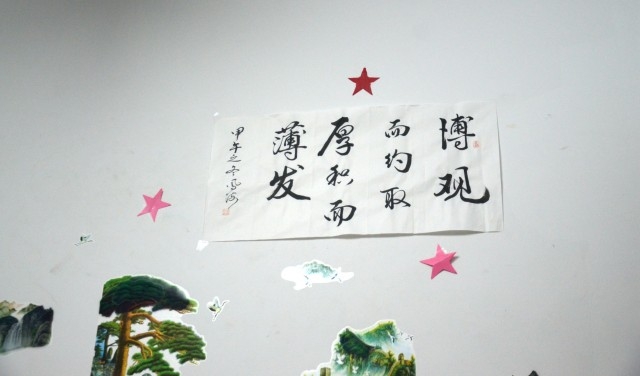 博观
而约取
厚积而
薄发
甲午之冬